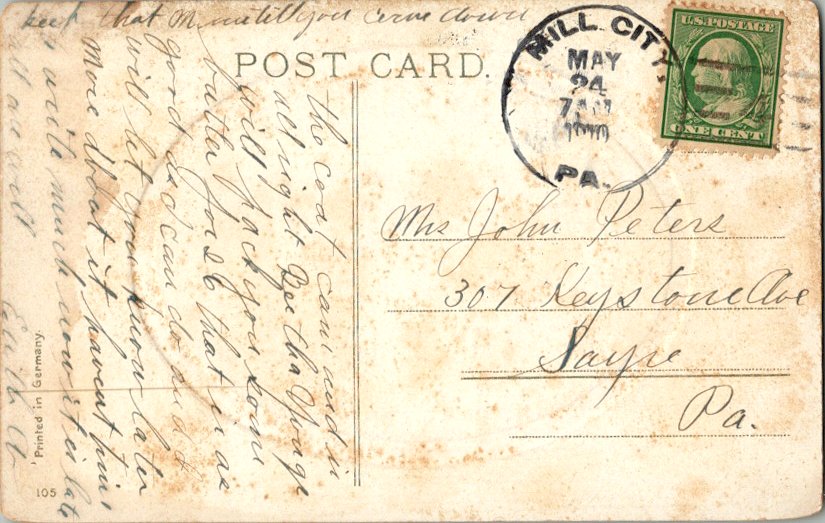 keep that Money till you come down
POST CARD.
MILL CITY,
MAY
24
7 AM
1910
PA.
U.S. POSTAGE
ONE CENT
the coat came and is
all right Bertha Young
will pack you some
butter for 26 that is as
good as I can do and I
will let you know later
More about it havent time
to write much now it is late
all are well
Mrs John Peters
307 Keystone Ave
Sayre
Pa.
Printed in Germany.
105